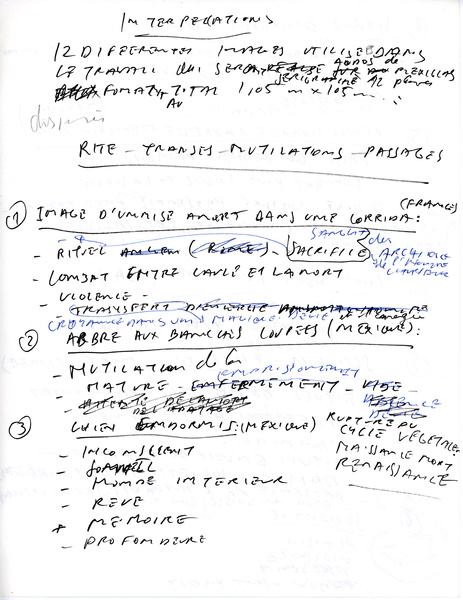 INTERPELLATIONS
12 DIFFERENTES IMAGES UTILISÉE DANS
LE TRAVAIL QUI SERA
SERIGRAPHIÉ SUR PLEXIGLAS
FORMAT TOTAL 1,05 m x 105 m
AU
RITE - TRANSES - MUTILATIONS - PASSAGES
(FRANCE)
① IMAGE D'UNE MISE A MORT DANS UNE CORRIDA:
SANGLIT
- RITUEL ANCIEN (RITE) - SACRIFICE des
ARCHAIQUE
- COMBAT ENTRE LA VIE ET LA MORT
- VIOLENCE -
- TRANSFERT D'ENERGIE
CROYANCE DANS UNE MAGIQUE
② ARBRE AUX BRANCHES COUPÉES (MEXIQUE):
- MUTILATION de la
EMPRISONNEMENT
- NATURE - ENFERMEMENT - VIDE
ABSENCE
③ CHIEN ENDORMIS: (MEXIQUE)
RUPTURE DU
CYCLE VEGETAL
NAISSANCE MORT
RENAISSANCE
- INCONSCIENT
- SOMMEIL
- MONDE INTERIEUR
- REVE
- MEMOIRE
- PROFONDEUR